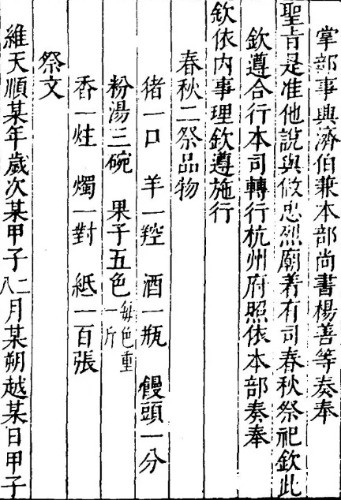 掌部事興濟伯兼本部尚書楊善等奏奉
聖旨是准他說與做忠烈廟着有司春秋祭祀欽此
欽遵合行本司轉行杭州府照依本部奏奉
欽依内事理欽遵施行
春秋二祭品物
猪一口 羊一羫 酒一瓶 饅頭一分
粉湯三碗 果子五色每色重一斤
香一炷 燭一對 紙一百張
祭文
維天順某年歲次某甲子二八月某朔越某日甲子